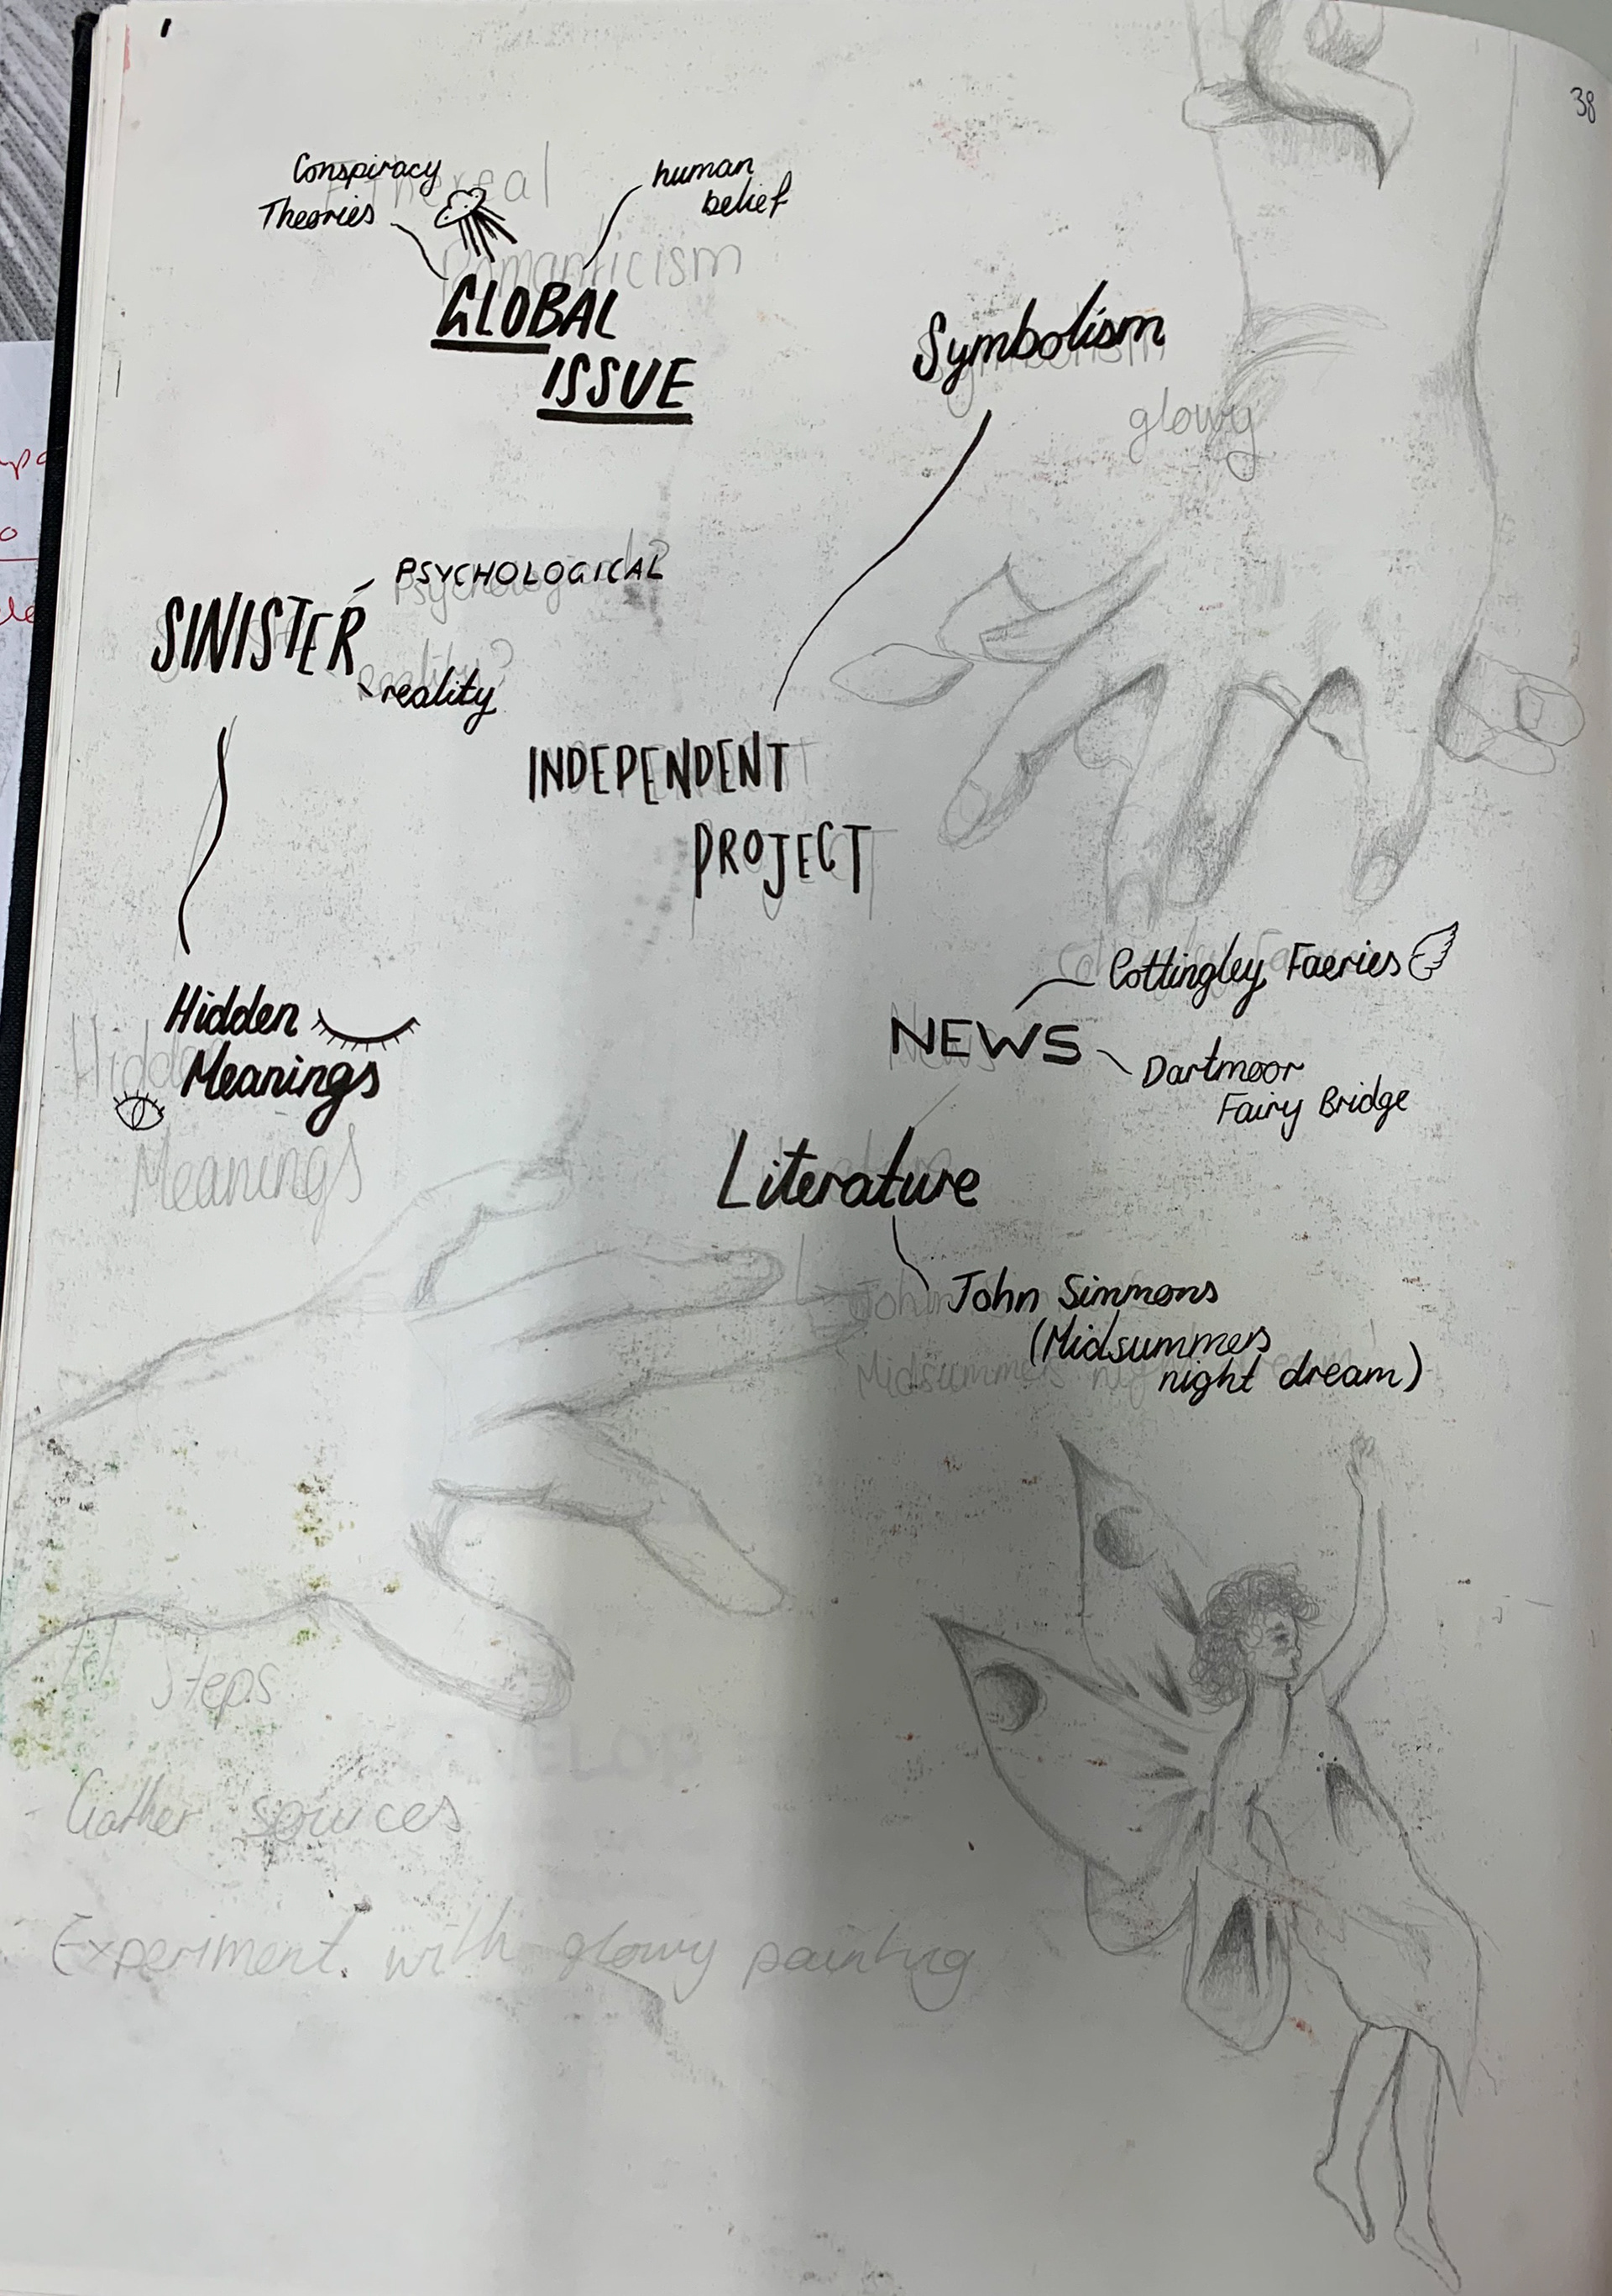 38
Conspiracy
Theories
human
belief
Ethereal
Romanticism
GLOBAL
ISSUE
Symbolism
Symbolism
glowy
PSYCHOLOGICAL
Psychological?
SINISTER
reality?
reality
INDEPENDENT
PROJECT
Cottingley Faeries
NEWS
News
Dartmoor
Fairy Bridge
Hidden
Meanings
Hidden
Meanings
Literature
John Simmons
(Midsummers
night dream)
John
Midsummers night dream
Steps
Gather sources
Experiment with glowy painting